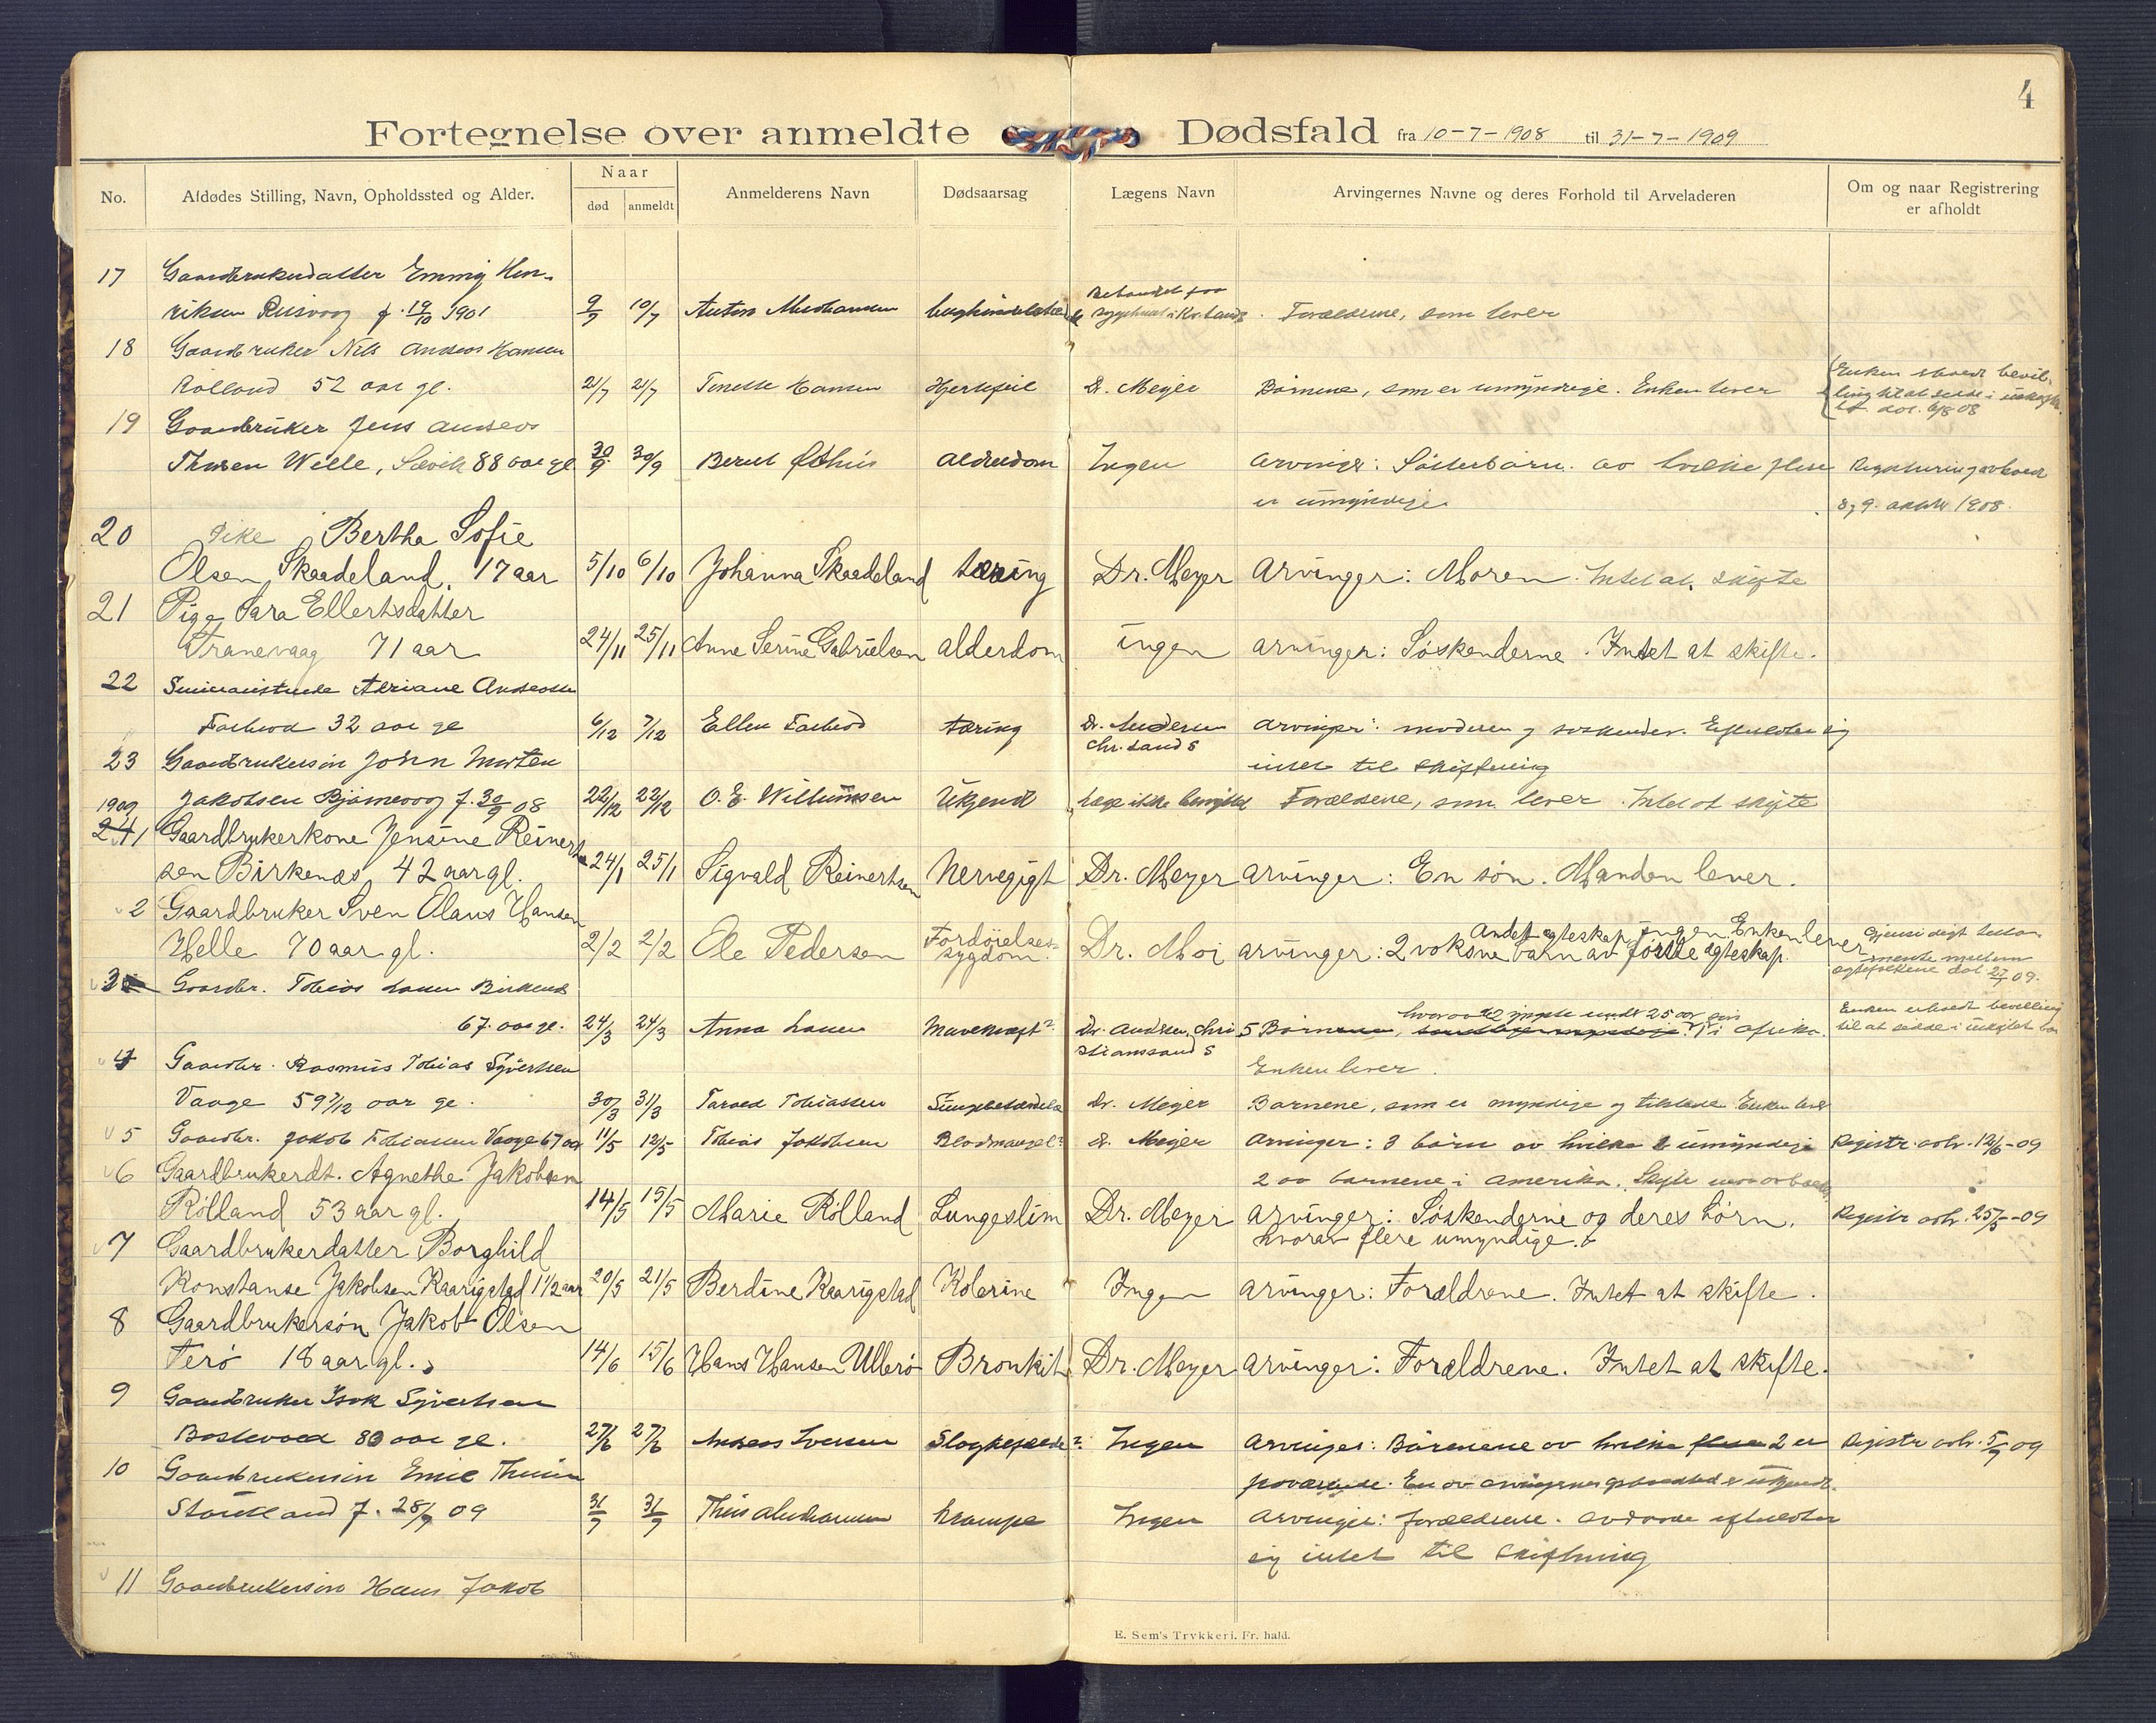 4
Fortegnelse over anmeldte Dødsfald fra 10-7-1908 til 31-7-1909
No. Afdødes Stilling, Navn, Opholdssted og Alder. Naar død anmeldt Anmelderens Navn Dødsaarsag Lægens Navn Arvingernes Navne og deres Forhold til Arveladeren Om og naar Registrering er afholdt
17 Gaardbrukerdatter Emmy Hen-
riksen Risvaag f. 19/10 1901 9/7 10/7 Anton Forældrene, som lever
18 Gaardbruker Nils Andreas Hansen
Rølland 52 aar gl. 21/7 21/7 Tomette Hansen Hjertefeil Dr. Meyer Børnene, som er umyndige. Enken lever Enken bevil-
ling til at sidde i uskiftet
19 Gaardbruker Jens Andreas
Thorsen Welle, Sævik 88 aar gl 30/9 30/9 Berut Østhus Alderdom Ingen Arvinger: Søsterbørn av hvilke flere Registrering avholdt
er umyndige 8, 9. oktbr 1908.
20 Pike Bertha Sofie
Olsen, Skaadeland. 17 aar 5/10 6/10 Johanna Skaadeland tæring Dr. Meyer Arvinger: Moren. Intet at skifte
21 Pige Sara Ellertsdatter
Tranevaag 71 aar 24/11 25/11 Anne Serine Gabrielsen alderdom ingen arvinger: Søskenderne. Intet at skifte.
22 Adriane Andersen
32 aar gl 6/12 7/12 Ellen tæring Dr. Andersen Arvinger: moderen og søskender. Efterlater sig
Chr.sand S intet til skiftning
23 Gaardbrukersøn John Morten
Jakobsen Bjørnevaag f. 30/9 08 22/12 22/12 O. E. Willumsen Ukjendt Læge ikke benyttet Forældrene, som lever. Intet at skifte
1909
24 1 Gaardbrukerkone Jensine Reinert-
sen Birkenæs, 42 aar gl. 24/1 25/1 Sigvald Reinertsen Nervegigt Dr. Meyer arvinger: En søn. Manden lever.
2 Gaardbruker Sven Olaus Hansen Andet egteskap ingen. Enken lever Gjensidigt testa-
Helle 70 aar gl. 2/2 2/2 Ole Pedersen Fordøielses-sygdom. Dr. Moi arvinger: 2 voksne barn av første egteskap. mente mellem
egtefolkene dat 27/7 09.
3 Gaardbr. Tobias Larsen Birkenes
67 aar gl. 24/3 24/3 Anna Larsen Mavekræft? Dr. Andersen, Chri- 5 Børnene, hvorav yngste under 25 aar i Afrika. Enken erholdt bevilling
stianssand S Enken lever. til at sidde i uskiftet bo
4 Gaardbr. Rasmus Tobias Syvertsen
Vaage 59 7/12 aar gl. 30/3 31/3 Tarald Tobiassen Lungebetændelse Dr. Meyer Børnene, som er myndige og tilstede. Enken lever
5 Gaardbr. Jakob Tobiassen Vaage 67 aar 11/5 12/5 Tobias Jakobsen Blodmangel? Dr. Meyer Arvinger: 3 børn av hvilke 2 umyndige Registr. avh. 12/6-09
2 av barnene i Amerika.
6 Gaardbrukerdt. Agnethe Jakobsen
Rølland 53 aar gl. 14/5 15/5 Marie Rølland Lungeslim Dr. Meyer arvinger: Søskenderne og deres børn, Registr avh. 25/5-09
hvorav flere umyndige.
7 Gaardbrukerdatter Borghild
Konstanse Jakobsen Kaarigstad 1 1/2 aar 20/5 21/5 Berdine Kaarigstad Kolerine Ingen arvinger: Forældrene. Intet at skifte.
8 Gaardbrukersøn Jakob Olsen
Terø 18 aar gl. 14/6 15/6 Hans Hansen Ullerø Bronkit Dr. Meyer arvinger: Forældrene. Intet at skifte.
9 Gaardbruker Isak Syvertsen
80 aar gl. 27/6 27/6 Andreas Iversen Ingen Arvinger: Børnene av hvilke flere 2 er Registr avh. 5/7 09
fraværende. En av arvingernes opholdssted er ukjendt.
10 Gaardbrukersøn Emil
f. 28/7 09 31/7 31/7 Krampe Ingen Arvinger: forældrene. Avdøde efterlater
sig intet til skiftning
11 Gaardbrukersøn Hans Jakob
E. Sem's Trykkeri. Fr.hald.